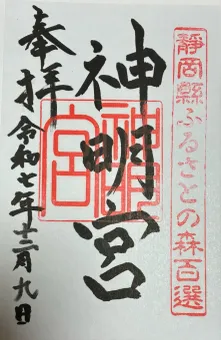 静岡縣ふるさとの森百選
神明宮
神明宮
奉拝
令和七年十二月九日